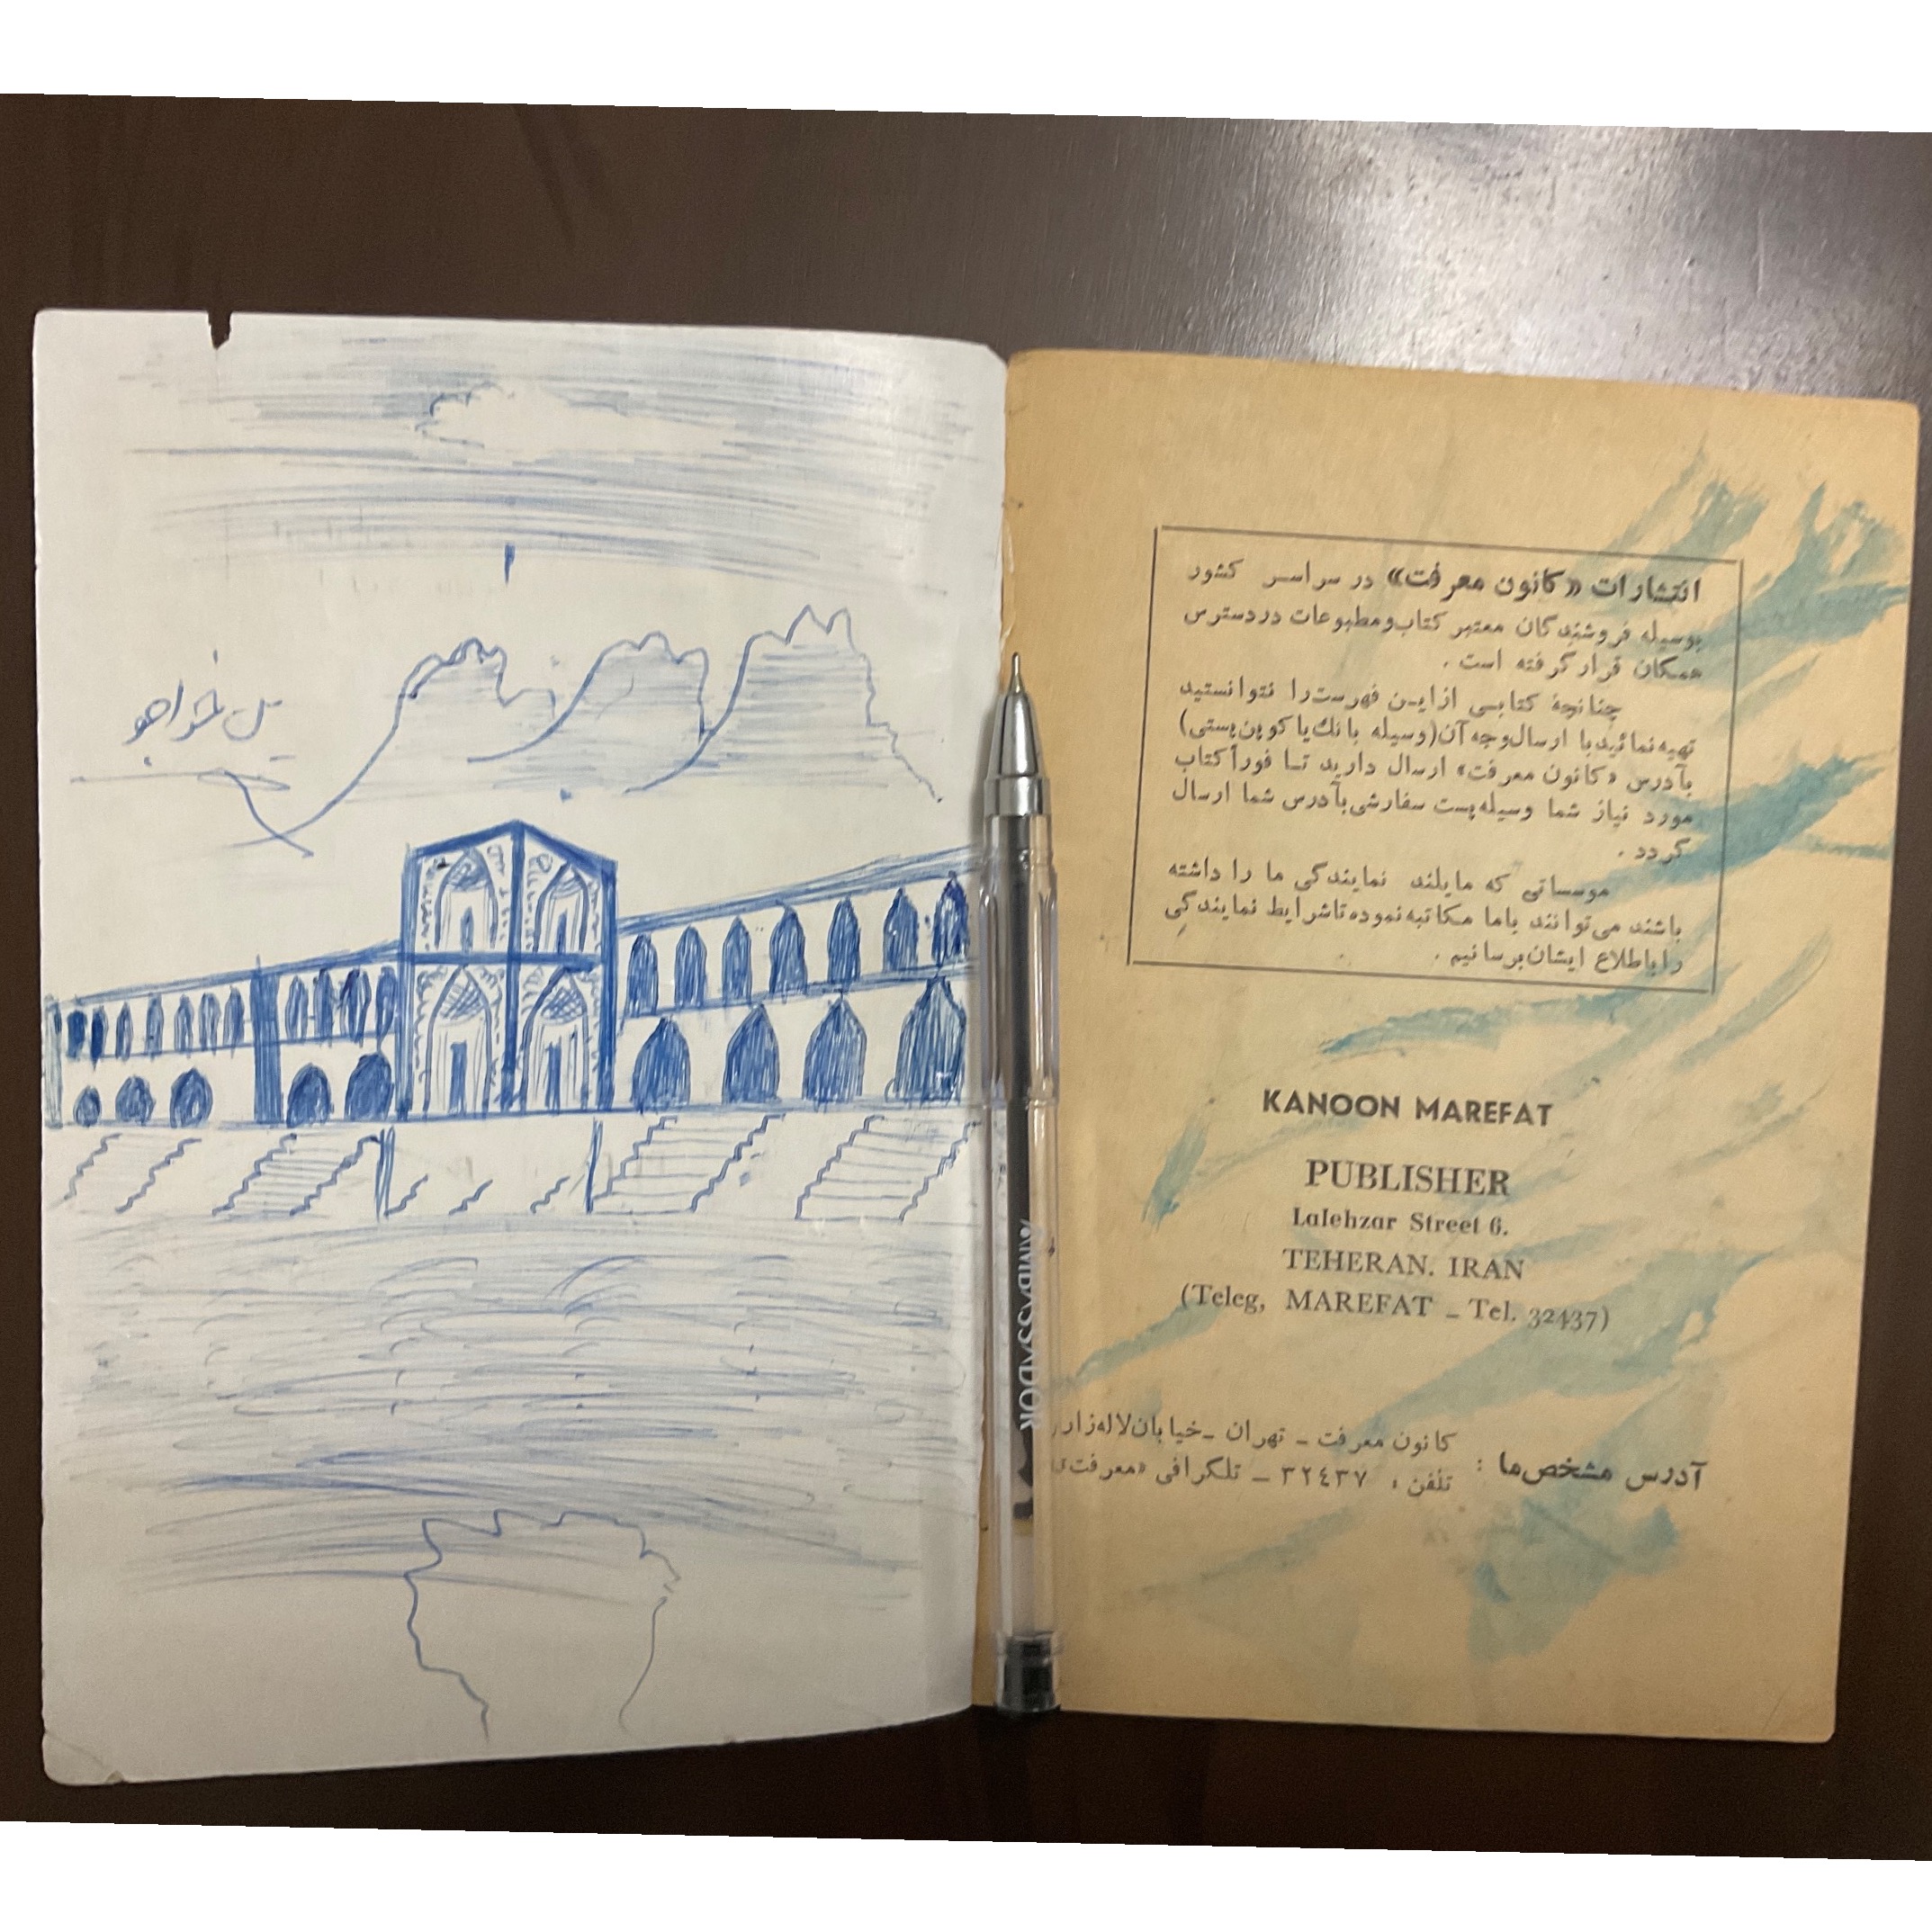 پل خواجو
انتشارات «کانون معرفت» در سراسر کشور
بوسیله فروشندگان معتبر کتاب و مطبوعات در دسترس
همگان قرار گرفته است .
چنانچه کتابی از این فهرست را نتوانستید
تهیه نمائید با ارسال وجه آن (وسیله بانک یا کوپن پستی)
بآدرس «کانون معرفت» ارسال دارید تا فوراً کتاب
مورد نیاز شما وسیله پست سفارشی بآدرس شما ارسال
گردد .
موسساتی که مایلند نمایندگی ما را داشته
باشند می‌توانند با ما مکاتبه نموده تا شرایط نمایندگی
را باطلاع ایشان برسانیم .
KANOON MAREFAT
PUBLISHER
Lalehzar Street 6.
TEHERAN. IRAN
(Teleg, MAREFAT _ Tel. 32437)
آدرس مشخص ما :
کانون معرفت ـ تهران ـ خیابان لاله‌زار
تلفن : ۳۲٤۳۷ ـ تلگرافی «معرفت»
AMBASSADOR